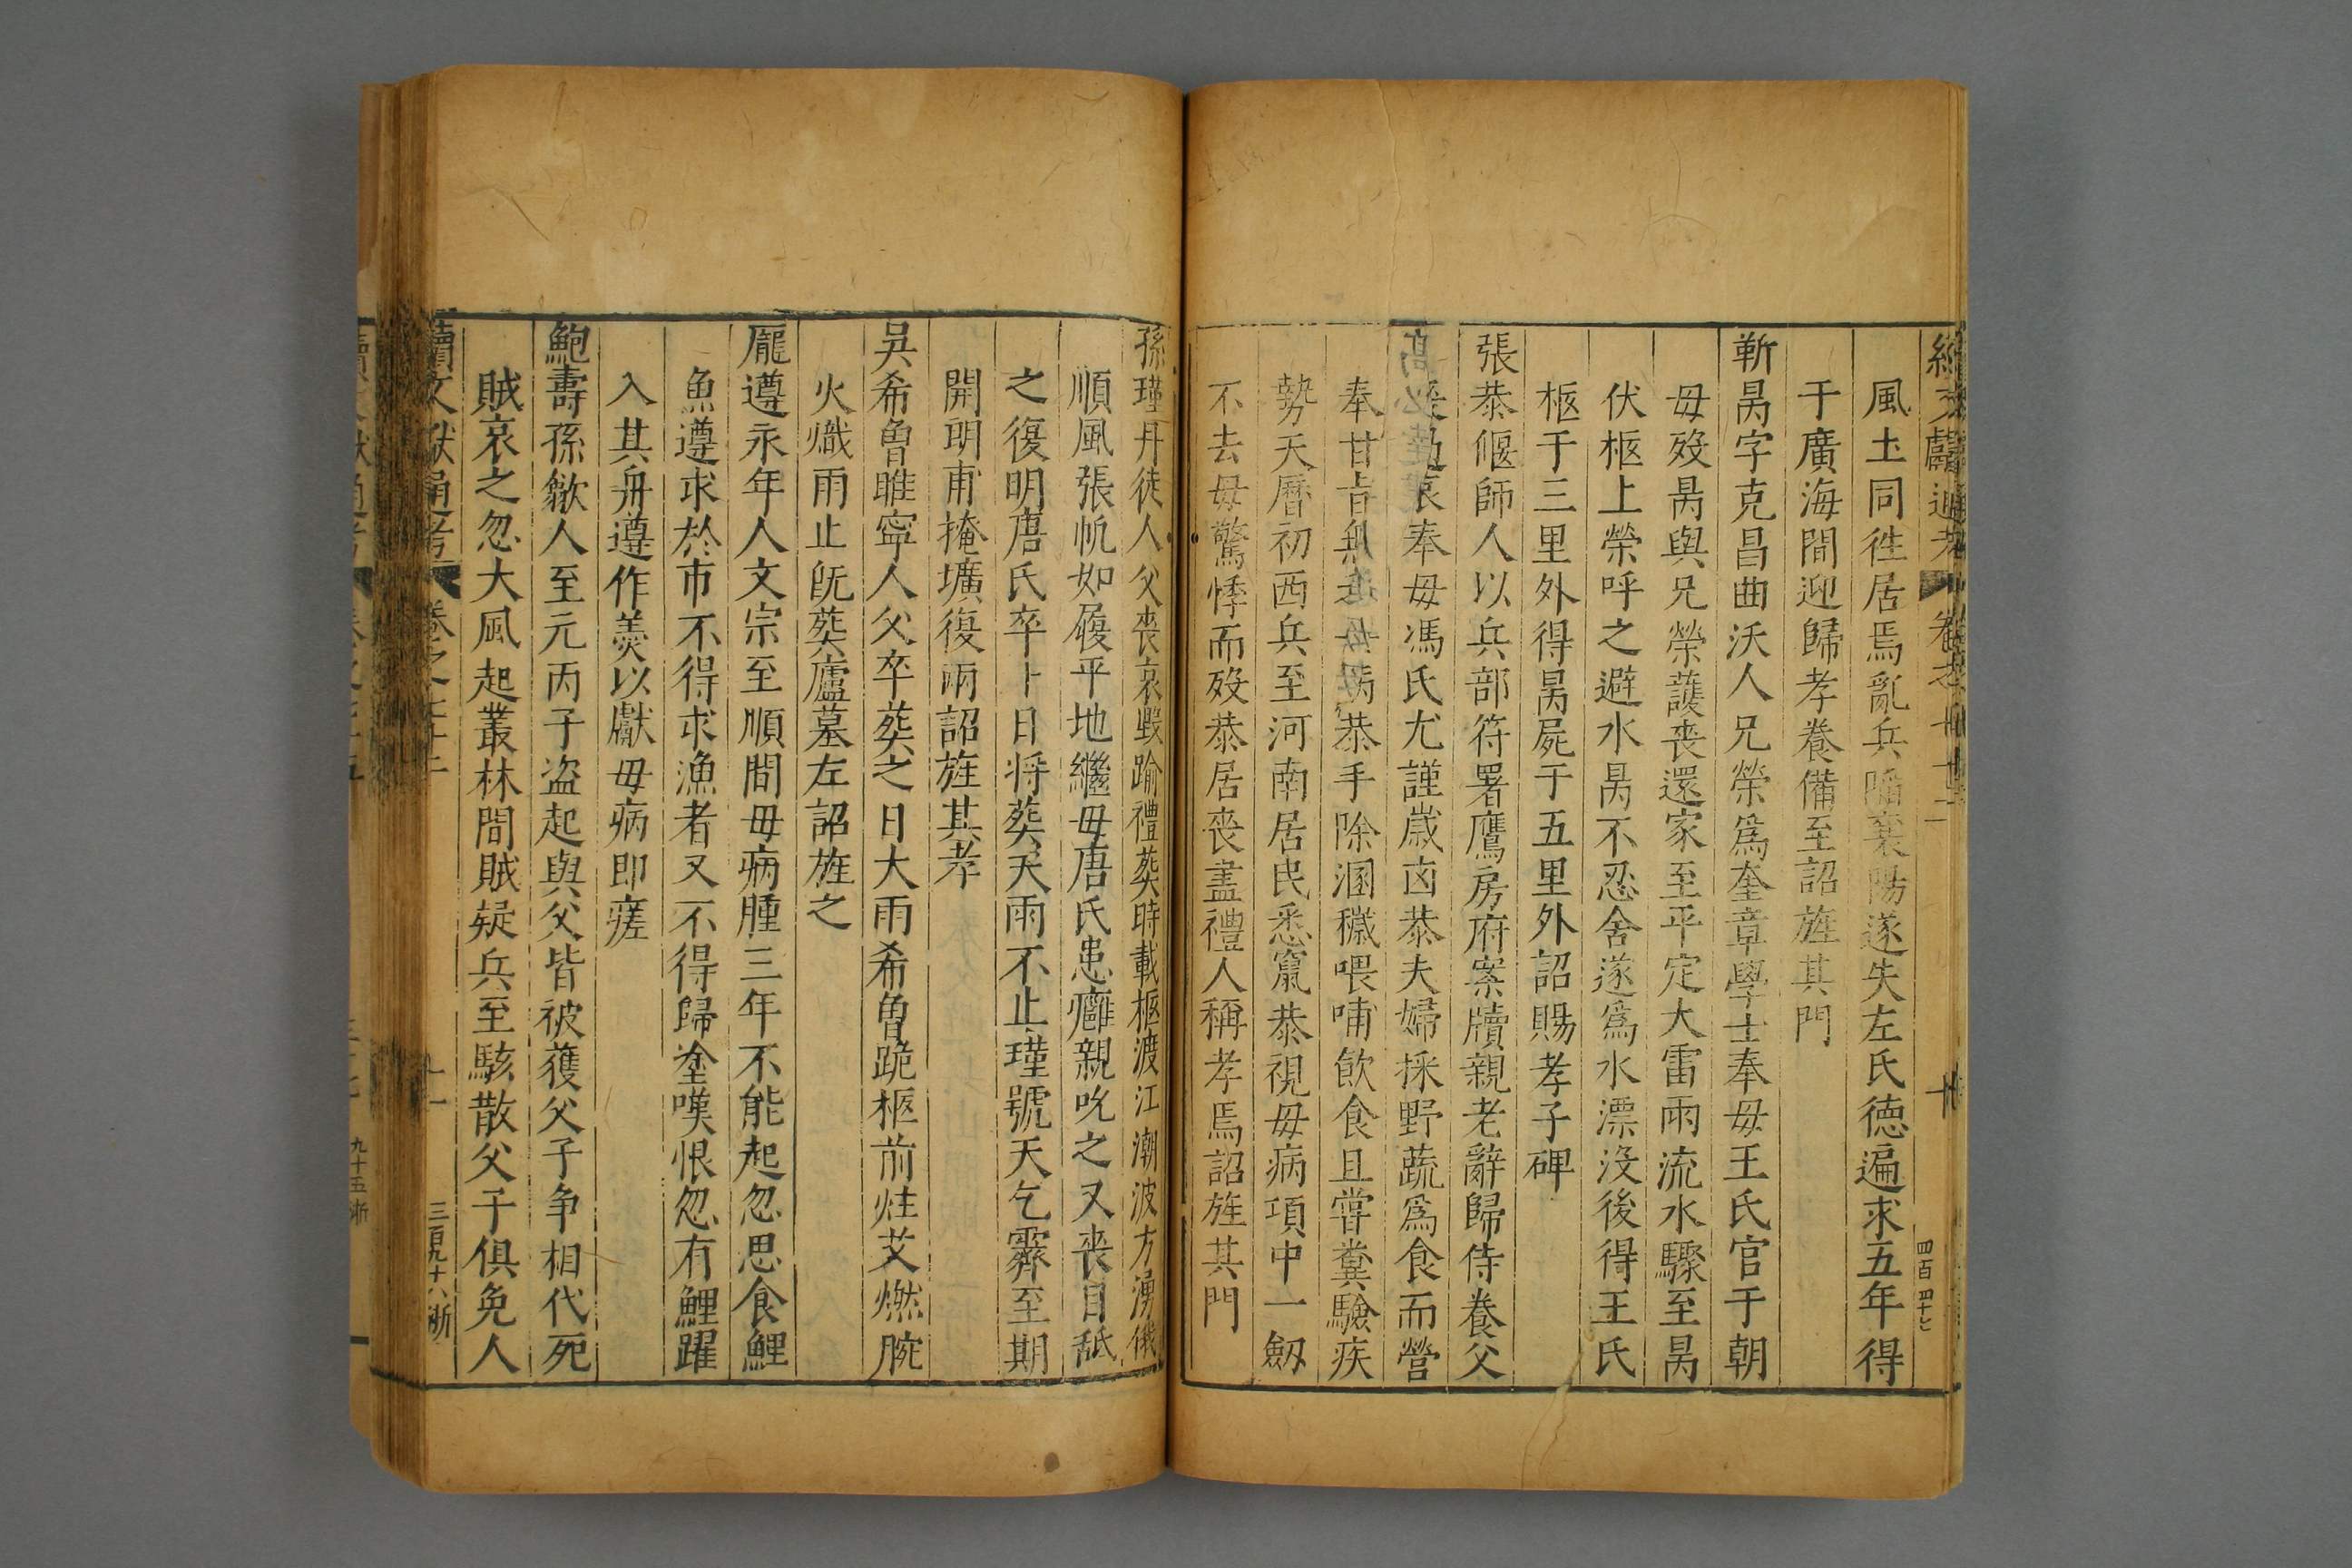 風土同徃居焉亂兵陷襄陽遂失左氏徳遍求五年得
于廣海間迎歸孝養備至詔旌其門
靳昺字克昌曲沃人兄榮爲奎章學士奉母王氏官于朝
母歿昺與兄榮䕶喪還家至平定大雷雨流水驟至昺
伏柩上榮呼之避水昺不忍舍遂爲水漂没後得王氏
柩于三里外得昺屍于五里外詔賜孝子碑
張恭偃師人以兵部符署鷹房府案牘親老辭歸侍養父
哀奉母馮氏尤謹歲凶恭夫婦採野蔬爲食而營
奉甘旨無 母病恭手除溷穢喂哺飲食且嘗糞驗疾
勢天曆初西兵至河南居民悉竄恭視母病項中一劔
不去母驚悸而歿恭居喪盡禮人稱孝焉詔旌其門
孫瑾丹徒人父喪哀毀踰禮葬時載柩渡江潮波方湧俄
順風張帆如履平地繼母唐氏患癰親吮之又喪目舐
之復明唐氏卒卜日将葬天雨不止瑾號天乞霽至期
開明甫掩壙復雨詔旌其孝
吳希魯睢寧人父卒葬之日大雨希魯跪柩前炷艾燃腕
火熾雨止旣葬廬墓左詔旌之
厖遵永年人文宗至順間母病腫三年不能起忽思食鯉
魚遵求於市不得求漁者又不得歸塗嘆恨忽有鯉躍
入其舟遵作羮以獻母病即瘥
鮑壽孫歙人至元丙子盗起與父皆被獲父子争相代死
賊哀之忽大風起叢林間賊疑兵至駭散父子俱免人
續文獻通考
三百九十六浙